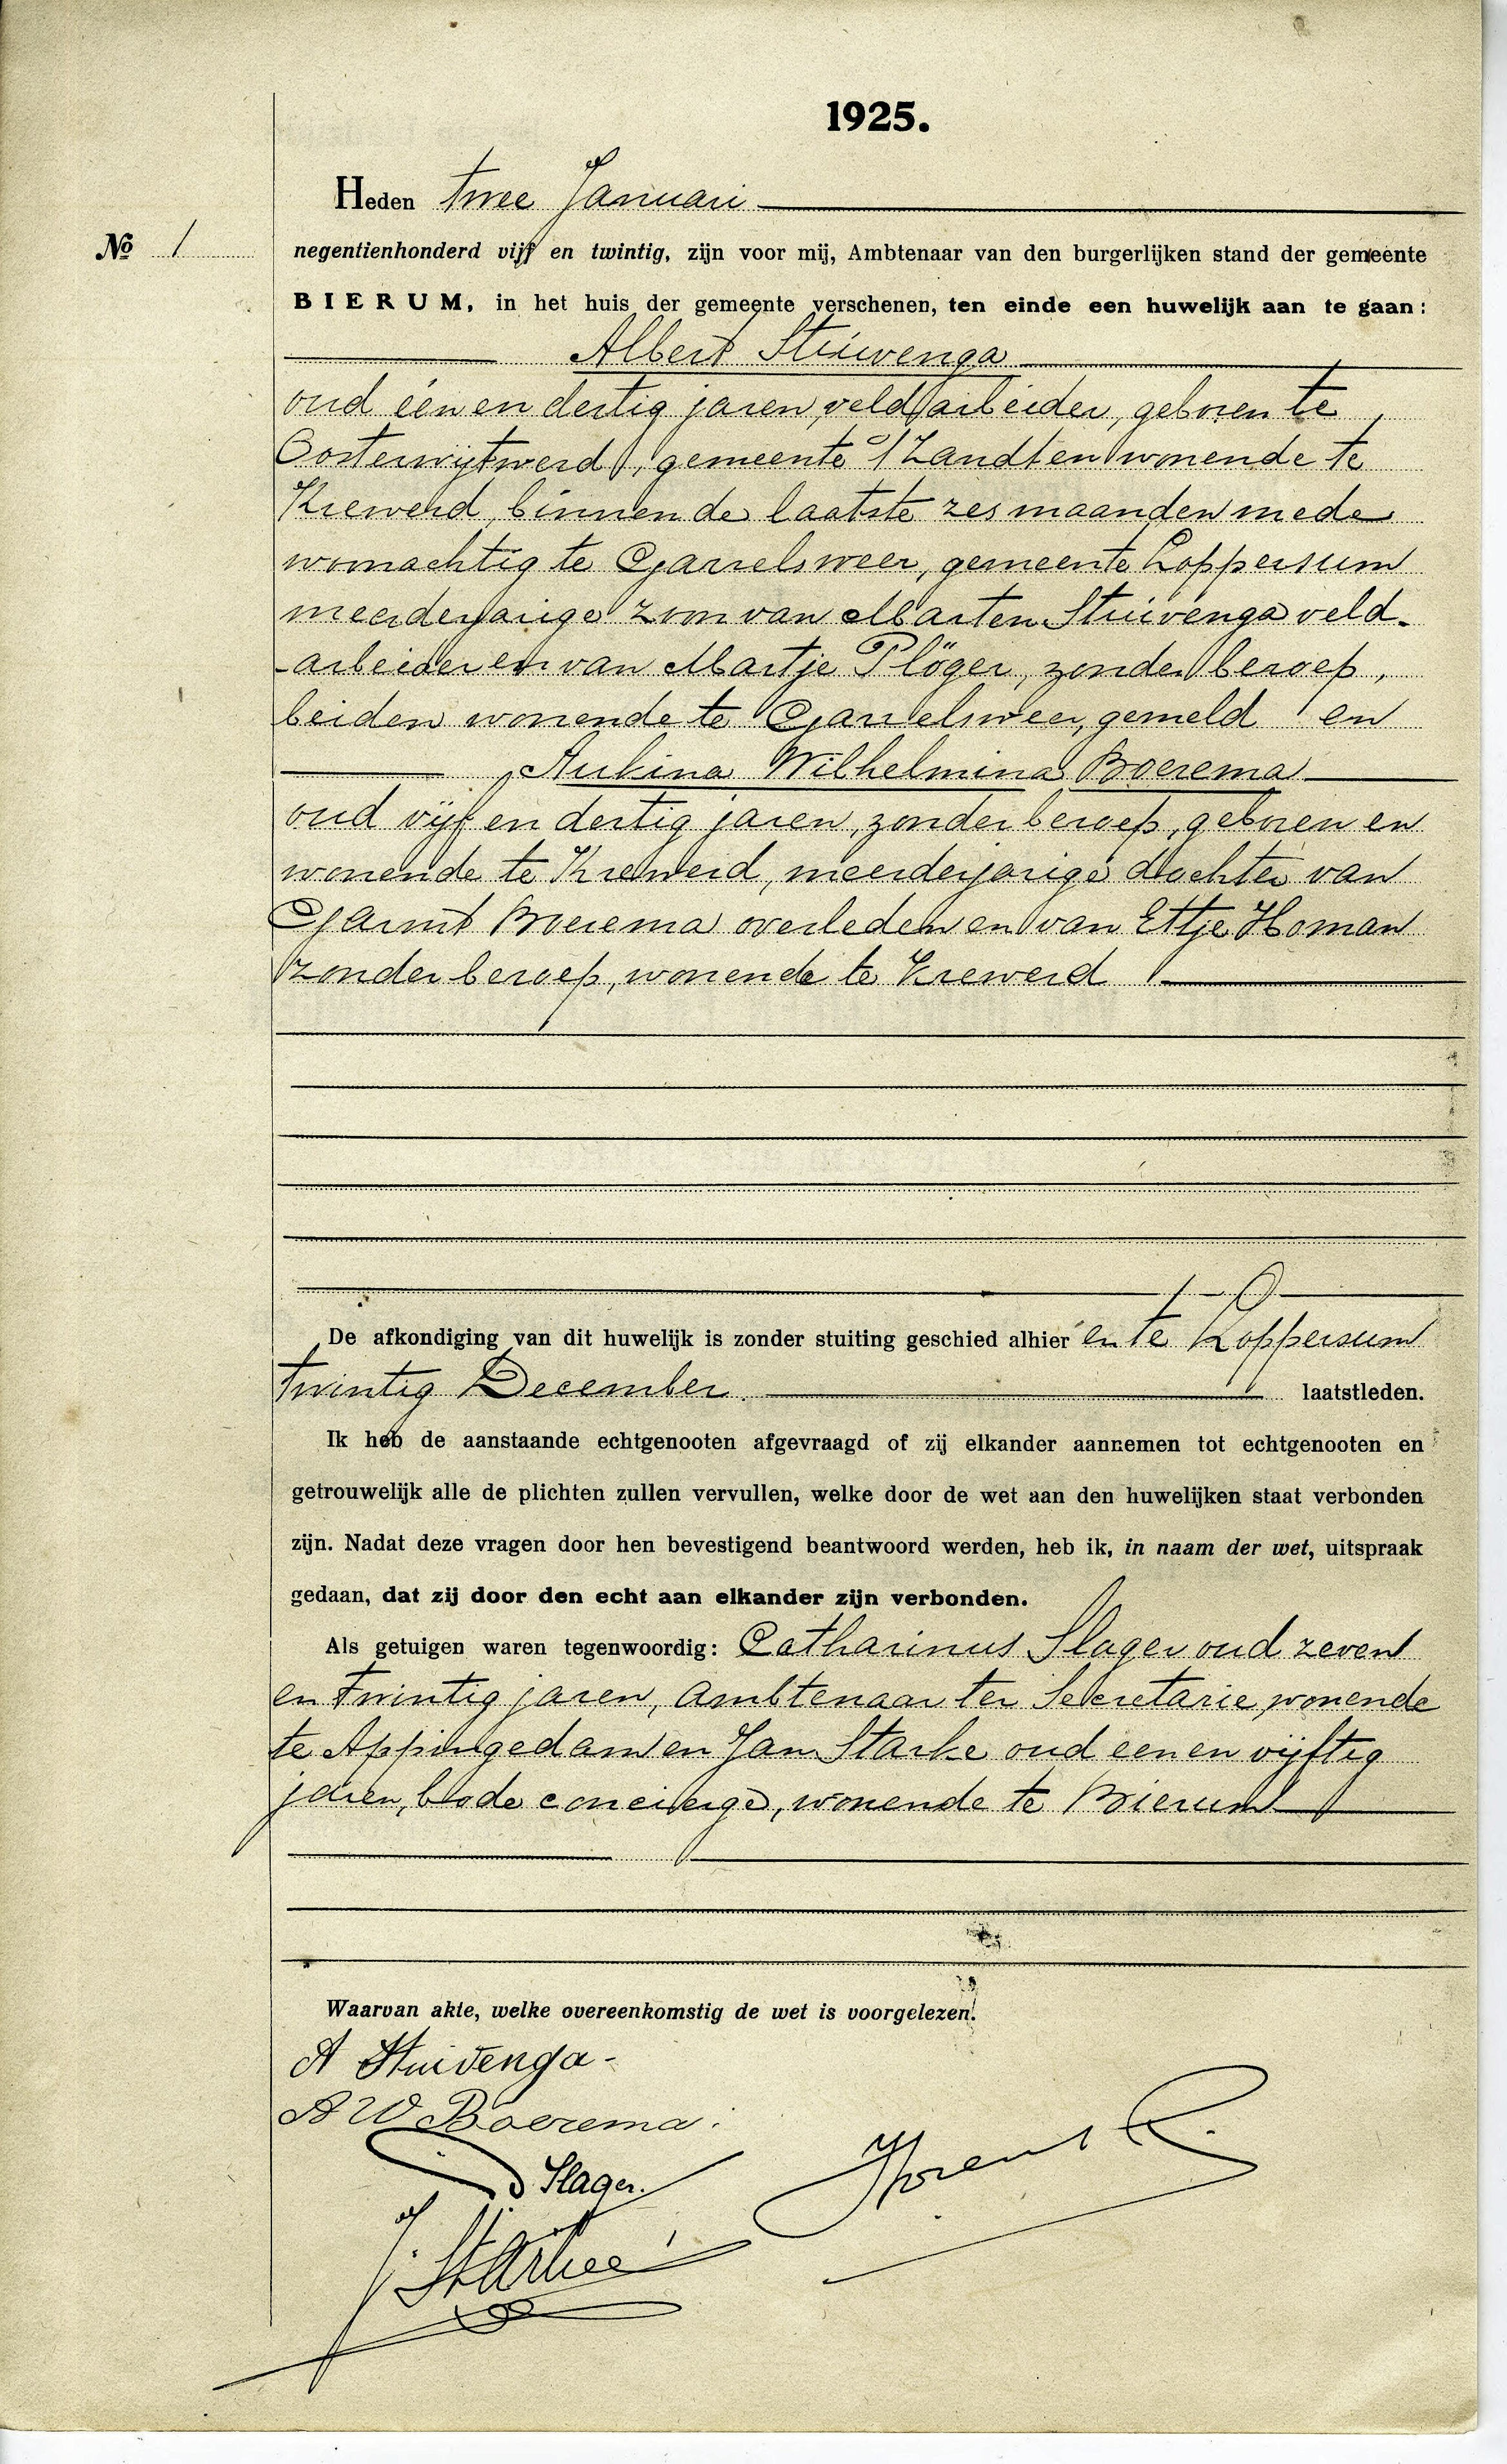 1925.
Heden twee Januari
No 1
negentienhonderd vijf en twintig, zijn voor mij, Ambtenaar van den burgerlijken stand der gemeente
BIERUM, in het huis der gemeente verschenen, ten einde een huwelijk aan te gaan:
Albert Stuivenga
oud één en dertig jaren, veldarbeider, geboren te
Oosterwijtwerd, gemeente 't Zandt en wonende te
Krewerd, binnen de laatste zes maanden mede
woonachtig te Garrelsweer, gemeente Loppersum
meerderjarige zoon van Marten Stuivenga veld-
-arbeider en van Martje Plöger, zonder beroep,
beiden wonende te Garrelsweer, gemeld en
Aukina Wilhelmina Boerema
oud vijf en dertig jaren, zonder beroep, geboren en
wonende te Krewerd, meerderjarige dochter van
Garmt Boerema overleden en van Ettje Homan
zonder beroep, wonende te Krewerd
De afkondiging van dit huwelijk is zonder stuiting geschied alhier en te Loppersum
twintig December laatstleden.
Ik heb de aanstaande echtgenooten afgevraagd of zij elkander aannemen tot echtgenooten en
getrouwelijk alle de plichten zullen vervullen, welke door de wet aan den huwelijken staat verbonden
zijn. Nadat deze vragen door hen bevestigend beantwoord werden, heb ik, in naam der wet, uitspraak
gedaan, dat zij door den echt aan elkander zijn verbonden.
Als getuigen waren tegenwoordig: Catharinus Slager oud zeven
en twintig jaren, ambtenaar ter Secretarie, wonende
te Appingedam en Jan Starke oud een en vijftig
jaren, bode concierge, wonende te Bierum
Waarvan akte, welke overeenkomstig de wet is voorgelezen.
A Stuivenga-
A W Boerema.
Slager.
J. Starke